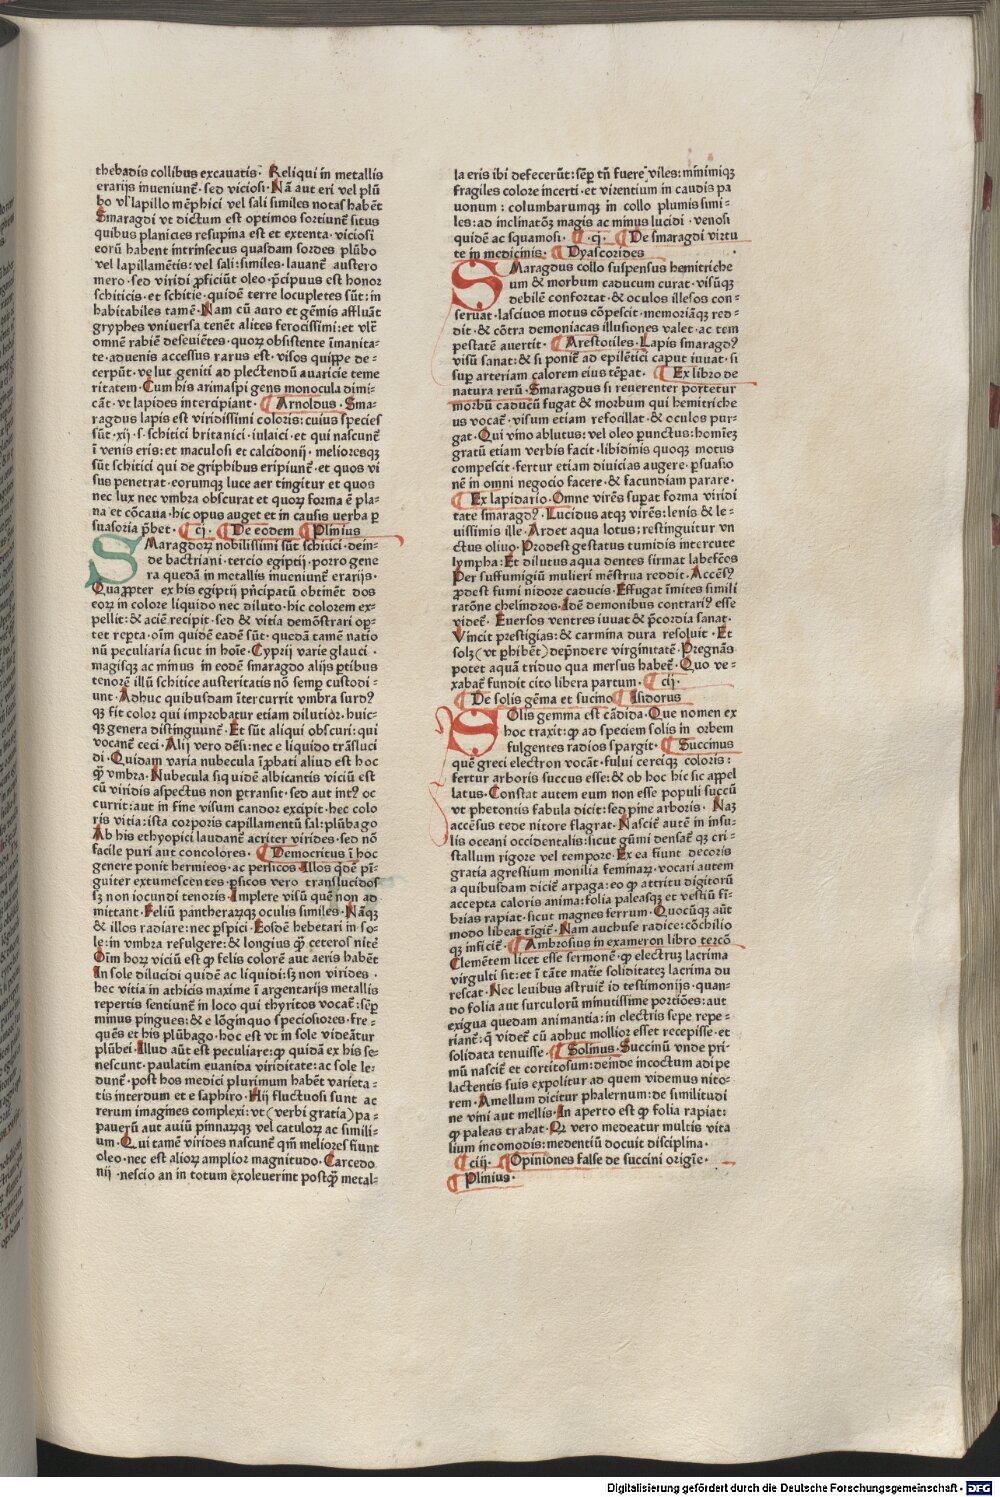 thebadis collibus excauatis· Reliqui in metallis
erarijs inueniunt̄· sed viciosi· Nā aut eri vel plū
bo vl̕ lapillo mēphici vel sali similes notas habēt
Smaragdi vt dictum est optimos sortiunt̄ situs
quibus planicies resupina est et extenta· viciosi
eorū habent intrinsecus quasdam sordes plūbo
vel lapillamētis: vel sali: similes· lauant̄ austero
mero· sed viridi ꝓficiūt oleo· p̄cipuus est honor
schiticis· et schitie· quidē terre locupletes sūt: in
habitabiles tamē· Nam cū auro et gēmis affluāt
gryphes vniuersa tenēt alites ferocissimi: et vlt̄
omnē rabiē deseuiētes· quoꝝ obsistente īmanita⸗
te· aduenis accessus rarus est· visos quippe de⸗
cerpūt· ve lut geniti ad plectendū auaricie teme
ritatem· Cum his arimaspi gens monocula dimi⸗
cāt· vt lapides intercipiant· ¶ Arnoldus· Sma⸗
ragdus lapis est viridissimi coloris: cuius species
sūt· xij· s· schitici britanici· iulaici· et qui nascunt̄
ī venis eris: et maculosi et calcidonij· melioresqꝫ
sūt schitici qui de griphibus eripiunt̄· et quos vi
sus penetrat· eorumqꝫ luce aer tingitur et quos
nec lux nec vmbra obscurat et quoꝝ forma ē pla⸗
na et cōcaua· hic opus auget et in causis uerba ꝑ
suasoria p̄bet· ¶ cj· ¶ De eodem ¶ Plinius
SMaragdoꝝ nobilissimi sūt schitici· dein⸗
de bactriani· tercio egiptij· porro gene
ra quedā in metallis inueniunt̄ erarijs·
Quaꝓpter ex his egiptij p̄ncipatū obtinēt dos
eoꝝ in colore liquido nec diluto· hic colorem ex⸗
pellit: & aciē recipit· sed & vitia demōstrari oꝑ⸗
tet reꝑta· oīm quidē eadē sūt· quedā tamē natio
nū peculiaria sicut in hoīe· Cyprij varie glauci·
magisqꝫ ac minus in eodē smaragdo alijs ꝑtibus
tenorē illū schitice austeritatis nō semꝑ custodi⸗
unt· Adhuc quibusdam ītercurrit vmbra surdꝰ
qꝫ fit color qui improbatur etiam dilutior· huic⸗
qꝫ genera distinguunt̄· Et sūt aliqui obscuri: qui
vocant̄ ceci· Alij vero dēsi: nec e liquido trāsluci
di· Quidam varia nubecula īprobati aliud est hoc
qͣ̄ vmbra· Nubecula siquidē albicantis viciū est
cū viridis aspectus non ꝑtransit· sed aut intꝰ oc
currit: aut in fine visum candor excipit· hec colo
ris vitia: ista corporis capillamentū sal: plūbago
Ab his ethyopici laudant̄ acriter virides· sed nō
facile puri aut concolores· ¶ Democritus ī hoc
genere ponit hermieos· ac persicos· Illos qͥdē pī⸗
guiter extumescentes· ꝑsicos vero translucidos
sꝫ non iocundi tenoris· Implere visū quē non ad
mittant· Feliū pantherarꝝqꝫ oculis similes· Nāqꝫ
& illos radiare: nec ꝑspici· Eosdē hebetari in so⸗
le: in vmbra refulgere: & longius qͣ̄ ceteros nite
Oīm hoꝝ viciū est qͣ̄ felis colorē aut aeris habēt
In sole dilucidi quidē ac liquidi: sꝫ non virides·
hec vitia in athicis maxime ī argentarijs metallis
repertis sentiunt̄ in loco qui thyritos vocat̄: sēꝑ
minus pingues: & e lōginquo speciosiores· fre⸗
quēs et his plūbago· hoc est vt in sole videātur
plūbei· Illud aūt est peculiare: ꝙ quidā ex his se⸗
nescunt· paulatim euanida viriditate: ac sole le⸗
dunt̄· post hos medici plurimum habēt varieta⸗
tis interdum et e saphiro· Hij fluctuosi sunt ac
rerum imagines complexi: vt (verbi gratia) pa⸗
pauerū aut auiū pinnaꝝqꝫ vel catuloꝝ ac simili⸗
um· Qui tamē virides nascunt̄ qm̄ meliores fiunt
oleo· nec est alioꝝ amplior magnitudo· Carcedo
nij· nescio an in totum exoleuerint postqͣ̄ metal⸗
la eris ibi defecerūt: sēꝑ tn̄ fuere viles: minimiqꝫ
fragiles colore incerti· et virentium in caudis pa
uonum: columbarumqꝫ in collo plumis simi⸗
les: ad inclinatōꝫ magis ac minus lucidi· venosi
quidē ac squamosi· ¶ ·cj· ¶ De smaragdi virtu
te in medicinis· ¶ Dyascorides
SMaragdus collo suspensus hemitriche
um & morbum caducum curat· visūqꝫ
debilē confortat· & oculos illesos con⸗
seruat· lasciuos motus cōpescit· memoriāqꝫ red⸗
dit· & cōtra demoniacas illusiones valet· ac tem
pestatē auertit· ¶ Arestotiles· Lapis smaragdꝰ
visū sanat: & si ponit̄ ad epilētici caput iuuat· si
suꝑ arteriam calorem eius tēꝑat· ¶ Ex libro de
natura rerū· Smaragdus si reuerenter portetur
morbū caducū fugat & morbum qui hemitriche
us vocat̄· visum etiam refocillat· & oculos pur⸗
gat· Qui vino ablutus: vel oleo ꝑunctus: homīeꝫ
gratū etiam verbis facit· libidinis quoqꝫ motus
compescit· fertur etiam diuicias augere· ꝑsuasio
nē in omni negocio facere· & facundiam parare·
¶ Ex lapidario· Omne virēs suꝑat forma viridi
tate smaragdꝰ· Lucidus atqꝫ virēs: lenis & le⸗
uissimis ille· Ardet aqua lotus: restinguitur vn
ctus oliuo· Prodest gestatus tumidis intercute
lympha: Et dilutus aqua dentes firmat labefēos
Per suffumigiū mulieri mēstrua reddit· Accēsꝰ
ꝓdest fumi nidore caducis· Effugat īmites simili
ratōne chelindros· Idē demonibus contrariꝰ esse
videt̄· Euersos ventres iuuat & p̄cordia sanat·
Vincit prestigias: & carmina dura resoluit· Et
solꝫ (vt ꝑhibēt) dep̄ndere virginitatē· Pregnās
potet aquā triduo qua mersus habet̄· Quo ve⸗
xabat̄ fundit cito libera partum· ¶ cij·
¶ De solis gēma et sucino ¶ Isidorus
SOlis gemma est cādida· Que nomen ex
hoc traxit: ꝙ ad speciem solis in orbem
fulgentes radios spargit· ¶ Succinus
quē greci electron vocāt· fului cereiqꝫ coloris:
fertur arboris succus esse: & ob hoc hic sic appel
latus· Constat autem eum non esse populi succū
vt phetontis fabula dicit: sed pine arboris· Naꝫ
accēsus tede nitore flagrat· Nascit̄ autē in insu⸗
lis oceani occidentalis: sicut gūmi densat̄ qꝫ cri⸗
stallum rigore vel tempore· Ex ea fiunt decoris
gratia agrestium monilia femmaꝝ· vocari autem
a quibusdam dicit̄ arpaga: eo ꝙ attritu digitorū
accepta caloris anima: folia paleasqꝫ et vestiū fī⸗
brias rapiat· sicut magnes ferrum· Quocūqꝫ aūt
modo libeat tīgit̄· Nam auchuse radice: cōchilio
qꝫ inficit̄· ¶ Ambrosius in exameron libro tercō
Clemētem licet esse sermonē· ꝙ electruꝫ lacrima
virgulti sit: et ī tāte mat̄ie soliditateꝫ lacrima du
rescat· Nec leuibus astruit̄ id testimonijs· quan⸗
do folia aut surculorū minutissime portiōes: aut
exigua quedam animantia: in electris sepe repe⸗
riant̄: q̄ videt̄ cū adhuc mollior esset recepisse· et
solidata tenuisse· ¶ Solinus· Succinū vnde pri⸗
mū nascit̄ et cortitosum: deinde incoctum adipe
lactentis suis expolitur ad quem videmus nito⸗
rem· Amellum dicitur phalernum: de similitudi
ne vini aut mellis· In aperto est ꝙ folia rapiat:
ꝙ paleas trahat· Qꝫ vero medeatur multis vita
lium incomodis: medentiū docuit disciplina·
¶ ciij· ¶ Opiniones false de succini origīe·
¶ Plinius·
Digitalisierung gefördert durch die Deutsche Forschungsgemeinschaft - DFG